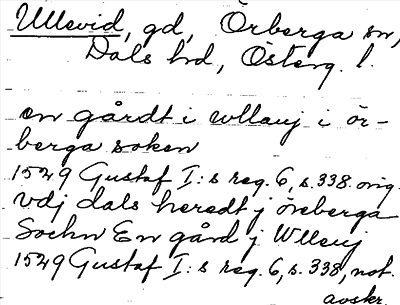 Ullevid, gd, Örberga sn,
Dals hd, Österg. l.
en gårdt i wllauj i ör-
berga soken
1529 Gustaf I:s reg. 6, s. 338. orig.
vdj dals heredt j öreberga
Sochn En gård j Wllauj
1529 Gustaf I:s reg. 6, s. 338, not.
avskr.